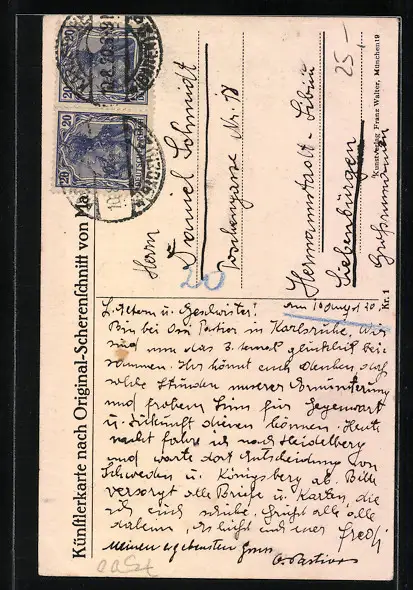 Künstlerkarte nach Original-Scherenschnitt von Ma
Kunstverlag Franz Walter, München 19
Nr. 1
20
20
Herrn
Daniel Schmidt
Nr. 18
Hermannstadt-Sibiu
Siebenbürgen
Großrumänien
25-
20
am 10 August 20
L. Eltern u. Geschwister!
Bin bei Osi Pastior in Karlsruhe. Wir
sind nun das 3. mal glücklich bei-
sammen. Ihr könnt euch denken daß
solche Stunden unserer Ermunterung
und frohem Sinn für Gegenwart
u. Zukunft dienen können. Heute
nacht fahre ich nach Heidelberg
und warte dort Entscheidung von
Schweden u. Königsberg ab. Bitte
versorgt alle Briefe u. Karten, die
ich euch schicke. Grüßt alle alle
daheim, es küsst euch euer Fredj
Meinen ergebensten Gruss
O. Pastior